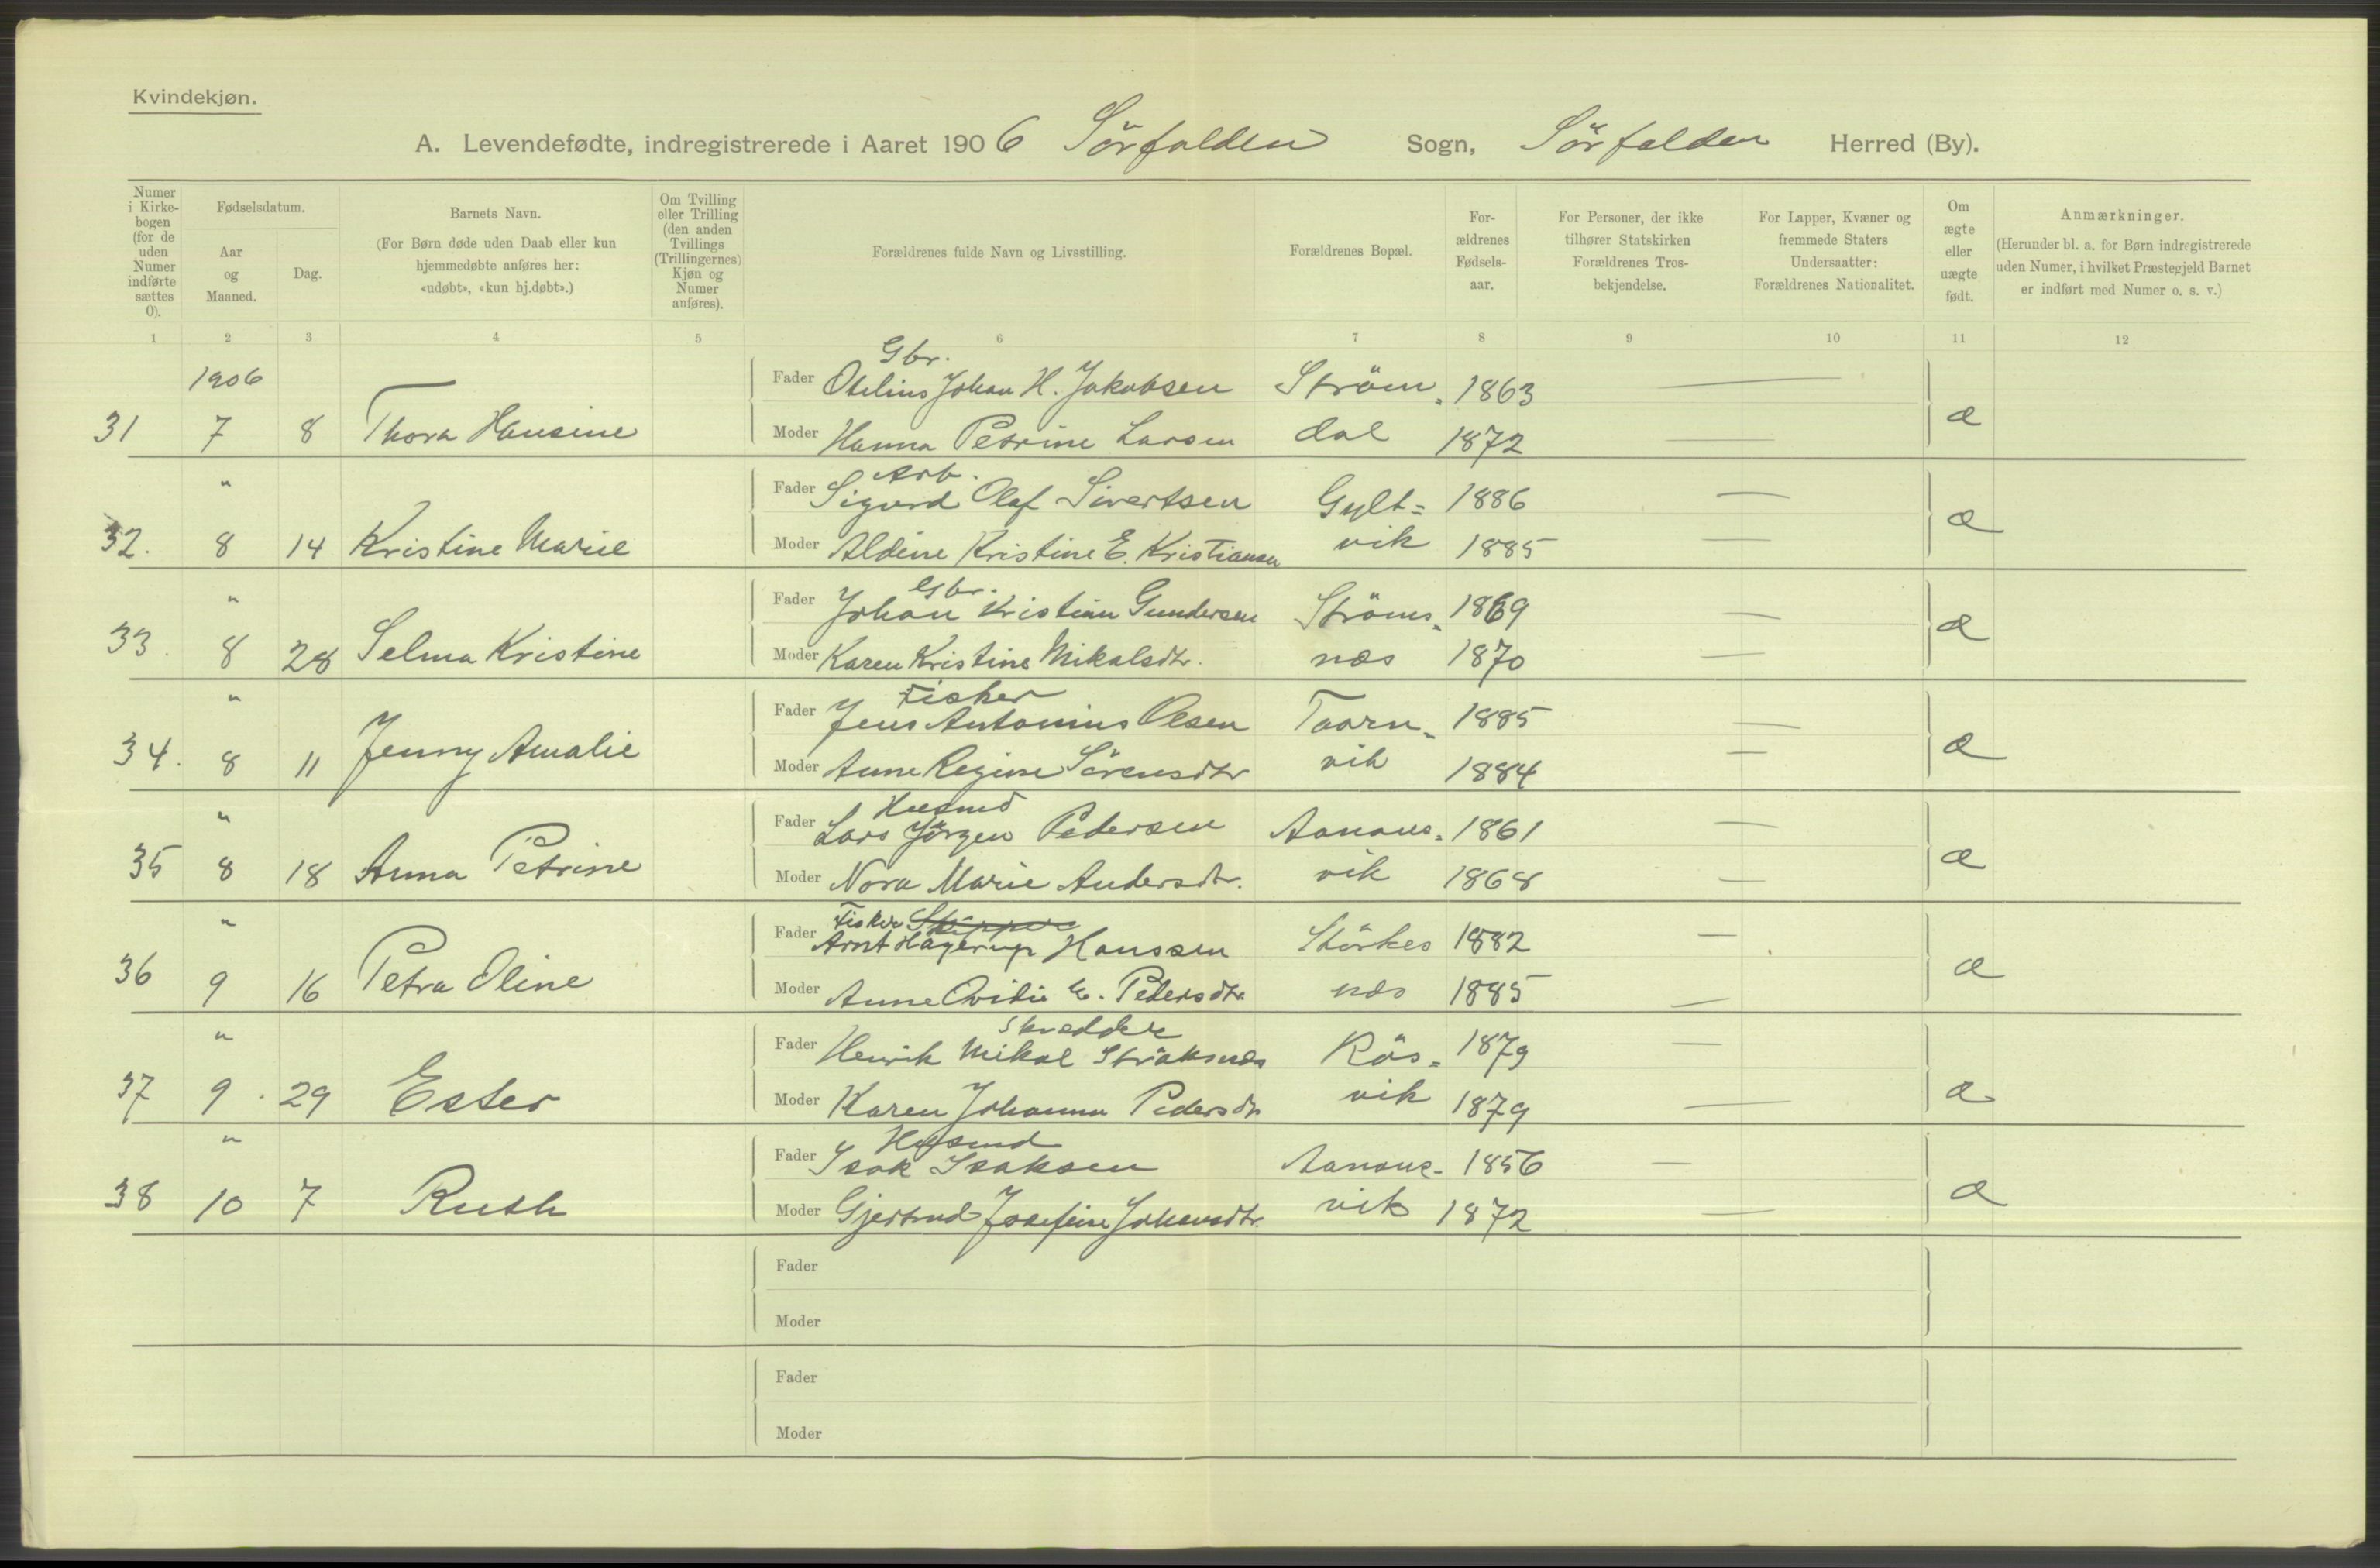 Kvindekjøn.
A. Levendefødte, indregistrerede i Aaret 1906 Sörfolden Sogn, Sörfolden Herred (By).
Numer i Kirkebogen (for de uden Numer indførte sættes 0).
Fødselsdatum.
Aar og Maaned.
Dag.
Barnets Navn.
(For Børn døde uden Daab eller kun hjemmedøbte anføres her: «udøbt», «kun hj.døbt».)
Om Tvilling eller Trilling (den anden Tvillings (Trillingernes) Kjøn og Numer anføres).
Forældrenes fulde Navn og Livsstilling.
Forældrenes Bopæl.
Forældrenes Fødselsaar.
For Personer, der ikke tilhører Statskirken Forældrenes Trosbekjendelse.
For Lapper, Kvæner og fremmede Staters Undersaatter: Forældrenes Nationalitet.
Om ægte eller uægte født.
Anmærkninger.
(Herunder bl. a. for Børn indregistrerede uden Numer, i hvilket Præstegjeld Barnet er indført med Numer o. s. v.)
1 2 3 4 5 6 7 8 9 10 11 12
Gbr.
1906 Fader Otelius Johan H. Jakobsen Ström- 1863 —
31 7 8 Thora Hansine Moder Hanna Petrine Larsen dal 1872 — æ
Arb.
" Fader Sigurd Olaf Sivertsen Gylt= 1886 —
32. 8 14 Kristine Marie Moder Aldine Kristine E. Kristiansen vik 1885 — æ
Gbr.
" Fader Johan Kristian Gundersen Ströms- 1869 —
33. 8 28 Selma Kristine Moder Karen Kristine Mikalsdtr. næs 1870 — æ
Fisker
" Fader Jens Antonius Olsen Taarn- 1885 —
34. 8 11 Jenny Amalie Moder Anne Regine Sörensdtr vik 1884 — æ
Husmd
" Fader Lars Jörgen Pedersen Aanons- 1861 —
35 8 18 Anna Petrine Moder Nora Marie Andersdtr. vik 1868 — æ
Fisker Skipper
" Fader Arnt Hagerup Hanssen Störkes 1882 —
36 9 16 Petra Oline Moder Anne Ovidie E. Pedersdtr. næs 1885 — æ
Skrædder
" Fader Henrik Mikal Stråksnes Rös- 1879 —
37 9 29 Ester Moder Karen Johanna Pedersdtr vik 1879 — æ
Husmd
" Fader Isak Isaksen Aanons- 1856 —
38 10 7 Ruth Moder Gjertrud Josefine Johansdtr. vik 1872 — æ
Fader
Moder
Fader
Moder